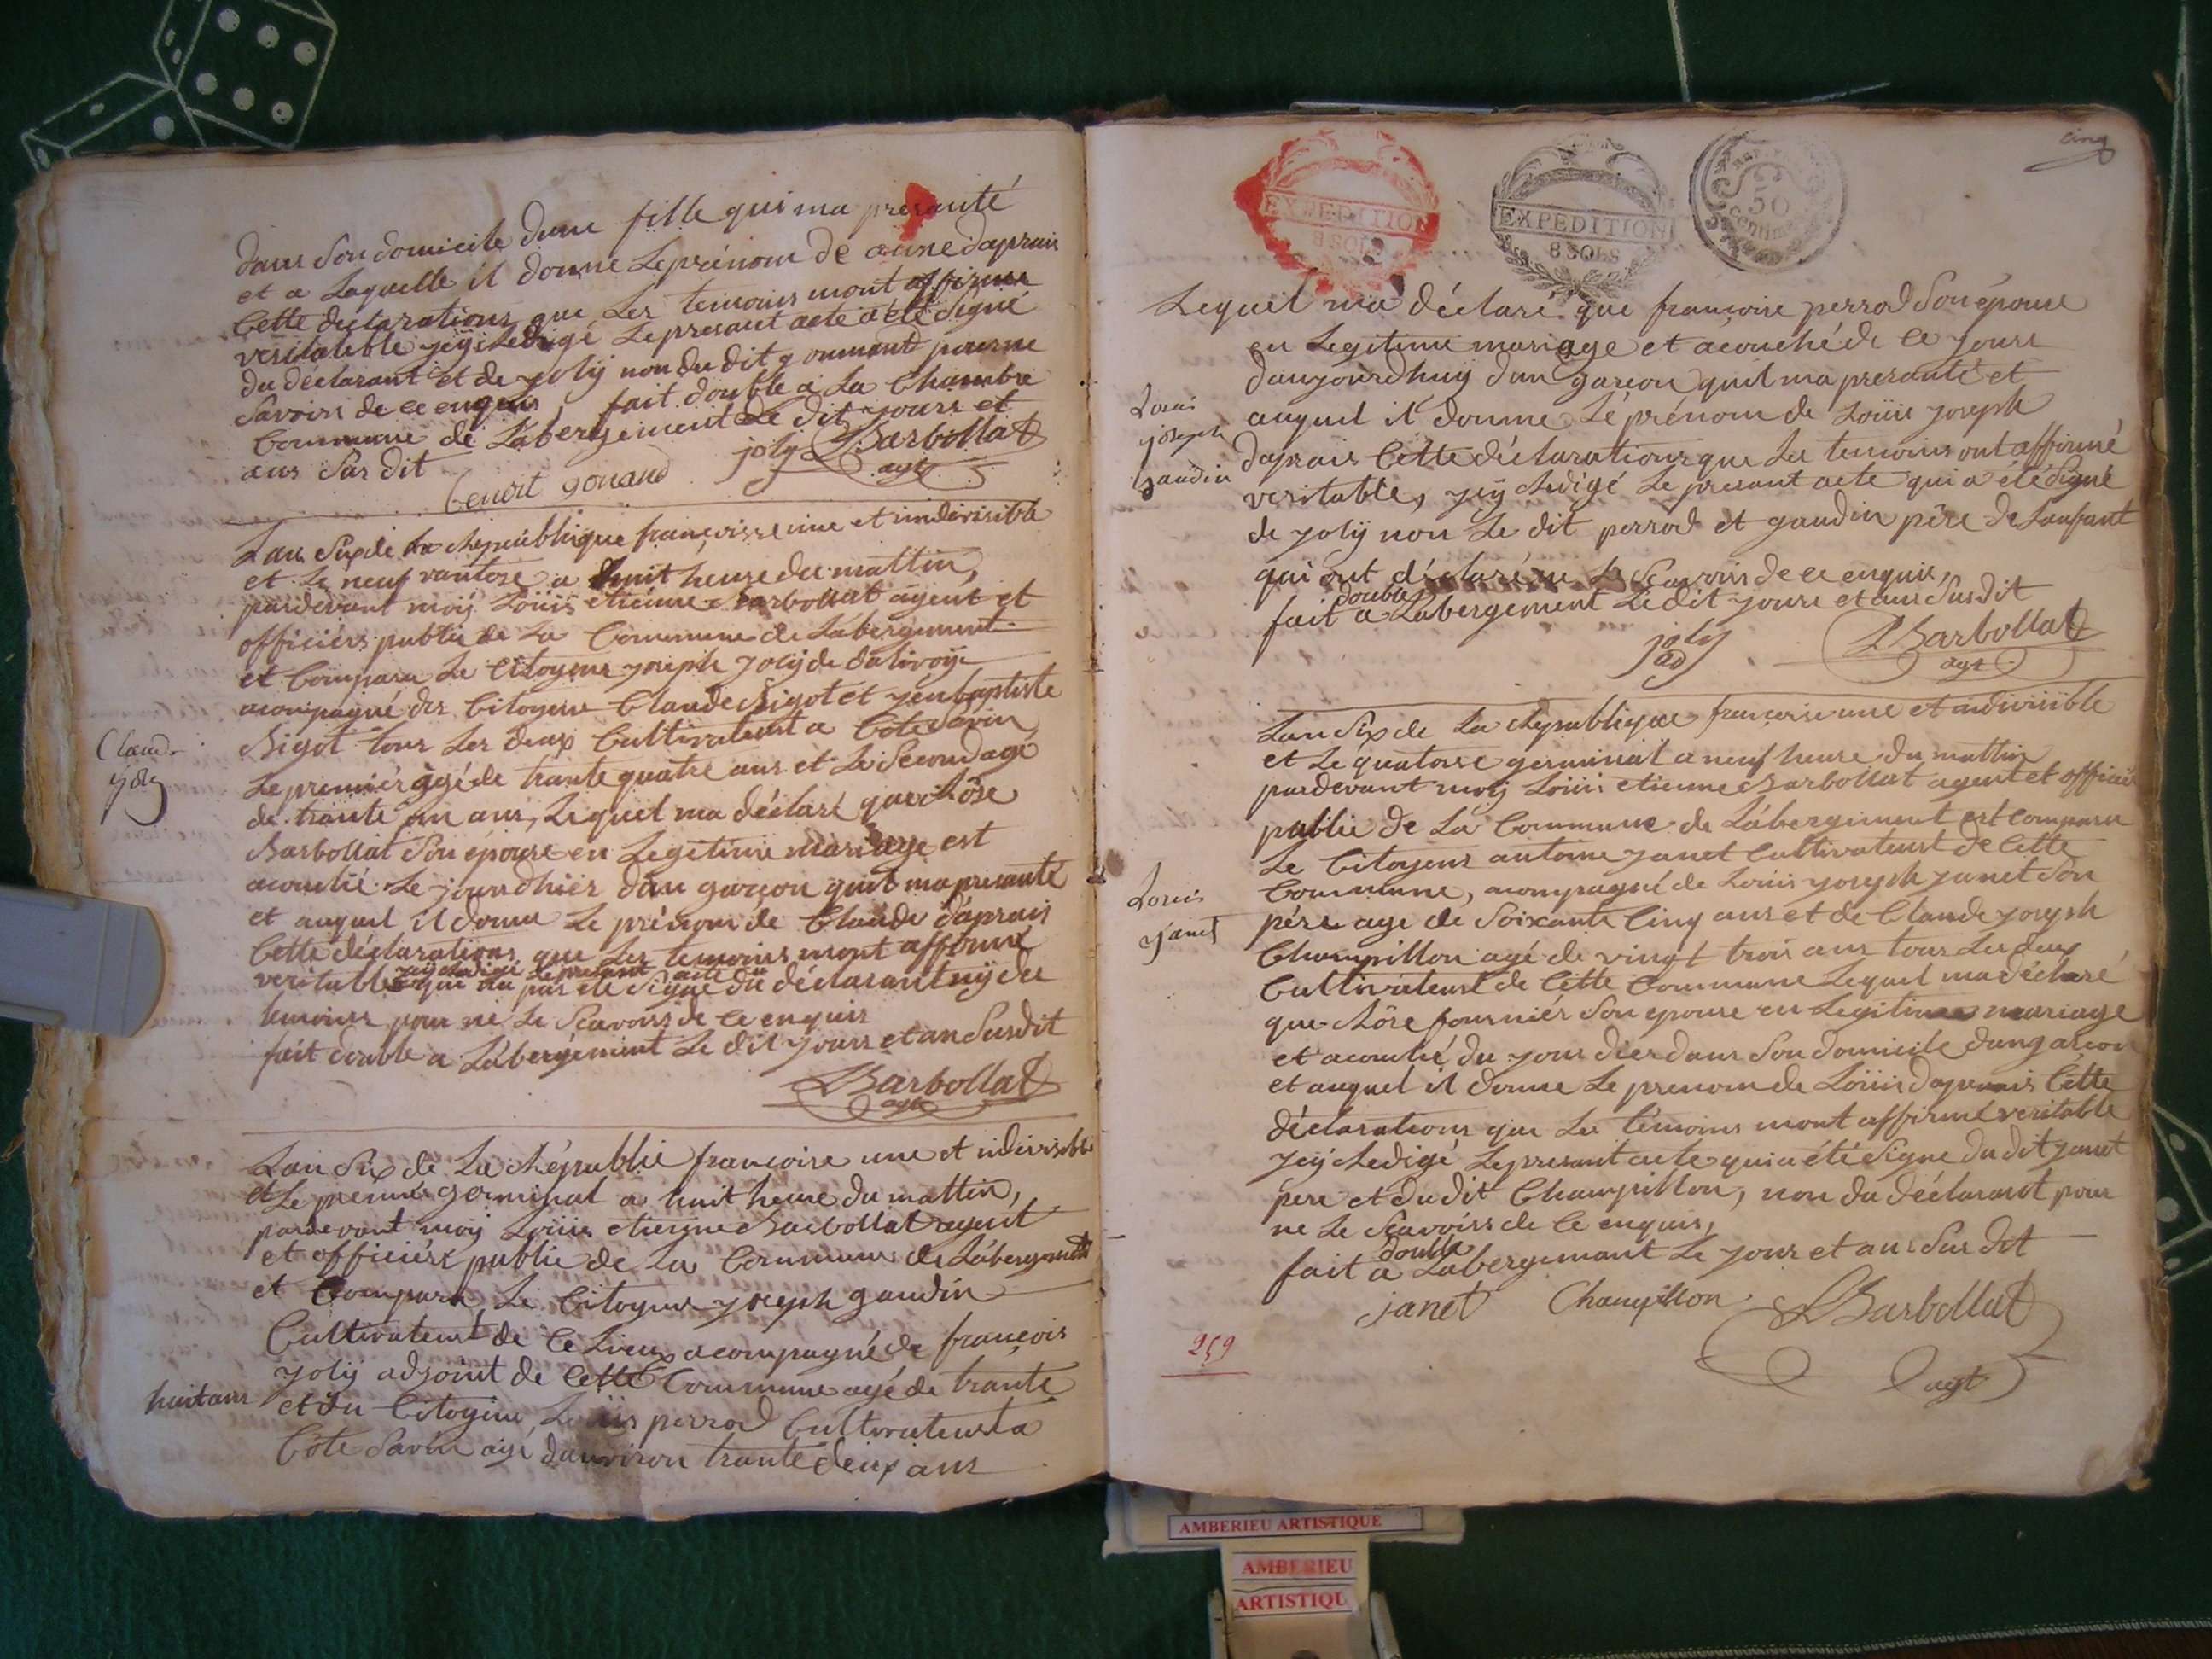 dans Son domicile dune fille qui ma presanté
et a Laquelle il donne Le prénom de anne daprais
Cette declarations que Les temoins mont affirmé
veritableble jeÿ Redigé Le presant acte a été Signé
du déclarant et de joly non du dit gounand pour ne
Savoirs de ce enquis, fait double a La Chambre
Commune de Labergement Le dit jours et
ans Sus dit
benoit gonand joly LBarbollat
agt
Lan Six de La Republique françoisse une et indivisible
et Le neuf vantose a huit heure du mattin,
pardevant moÿ Loüis etiénne Barbollat agent et
officiérs public de La Commune de Labergement
et Comparu Le Citoyens joseph jolÿ de dalivoÿe
acompagné des Citoyens Claude Bigot et jenbaptiste
Bigot tous Les deux Cultivateurst a Côte Savin
Le premiér agé de trante quatre ans et Le Second agé
de trante un ans, Lequel ma déclaré que Rôse
Barbollat Son épouse en Legitime mariage est
acouché Le jour dhiér dun garçon quil ma presanté
et auquel il donne Le prénom de Claude daprais
Cette déclarations que Les temoins mont affirmé
jeÿ Redigé Le presant acte
veritable qui na pas été Signé du déclarant nÿ des
temoins pour ne Le Scavoirs de ce enquis
fait double a Labergement Le dit jours et an Susdit
LBarbollat
agt
Claude
joly
Lan Six de La Républic françoise une et indivisible
et Le premiér germinal a huit heure du mattin,
pardevant moÿ Loüis etienne Barbollat agent
et officiérs public de La Commune de Labergement
et Comparu Le Citoyens joseph gaudin
Cultivateurst de Ce Lieux acompagné de françois
jolÿ adjoint de Cette Commune agé de trante
huit ans et du Citoyens Loüis perrod Cultivateurst a
Côte Savin agé danviron trante deux ans
cinq
EXPEDITION
8 SOLS
EXPEDITION
8 SOLS
50
centimes
Lequel ma déclaré que françoise perrod Son épouse
en Legitime mariage et acouché de ce jours
daujourdhuÿ dun garçon quil ma presanté et
auquel il donne Le prénom de Loüis joseph
daprais Cette déclarations que Les temoins ont affirmé
veritable, jeÿ Redigé Le presant acte qui a été Signé
de jolÿ non Le dit perrod et gaudin père de Lanfant
qui ont déclaré ne Le Scavoirs de ce enquis,
double
fait a Labergement Le dit jours et ans Susdit
joly
adj
LBarbollat
agt
Louis
joseph
gaudin
Lan Six de La Republique françoise une et indivisible
et Le quatorse germinal a neuf heure du mattin
pardevant moÿ Loüis etienne Barbollat agent et officiér
public de La Commune de Labergement est Comparu
Le Citoyens antoine janet Cultivateurst de Cette
Commune, acompagné de Loüis joseph janet Son
pére age de Soixante Cinq ans et de Claude joseph
Champillon agé de vingt trois ans tous Les deux
Cultivateurst de Cette Commune Lequel ma déclaré
que Rôse fourniér Son epouse en Legitime mariage
et acouché du jour dier dans Son domicile dun garcon
et auquel il donne Le prenom de Loüis daprais Cette
déclarations que Les témoins mont affirmé veritable
jeÿ Redigé Le presant acte qui a été Signe du dit janet
pere et du dit Champillon, non du déclarant pour
ne Le Scavoirs de Ce enquis,
double
fait a Labergemant Le jour et ans Sus dit
janet Champillon LBarbollat
agt
Louis
janet
259
AMBERIEU ARTISTIQUE
AMBERIEU
ARTISTIQU